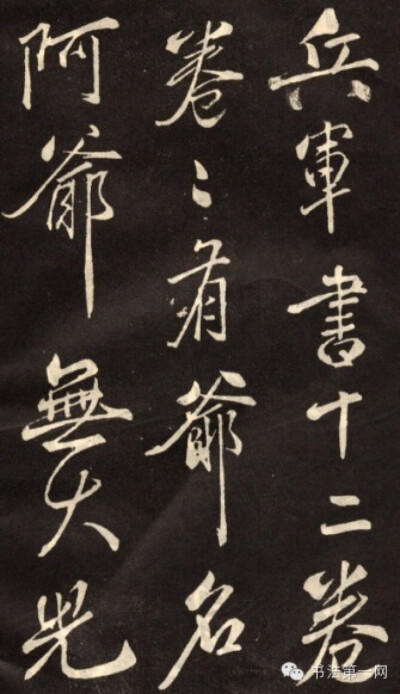 兵軍書十二卷
卷〻有爺名
阿爺無大兒
书法第一网